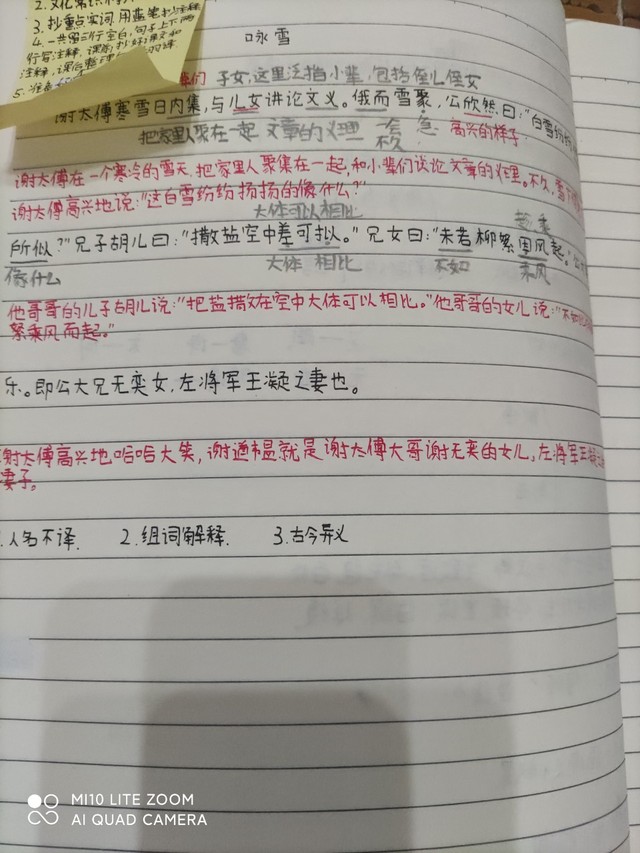 2.文化常识
3.抄重点实词.用蓝笔抄注释
4.一共留三行空白,句子上下两
行写注释,课前抄好课文和
注释,课后整理
5.准备
咏雪
们 子女,这里泛指小辈,包括侄儿侄女
谢太傅寒雪日内集,与儿女讲论文义。俄而雪聚,公欣然曰:"白雪纷纷
把家里人聚在一起 文章的义理 一会 急 高兴的样子
不久
谢太傅在一个寒冷的雪天,把家里人聚集在一起,和小辈们谈论文章的义理。不久,雪下
谢太傅高兴地说:"这白雪纷纷扬扬的像什么?"
大体可以相比 趁乘
所似?"兄子胡儿曰:"撒盐空中差可拟。"兄女曰:"未若柳絮因风起。"公
像什么 大体 相比 不如 乘风
他哥哥的儿子胡儿说:"把盐撒在空中大体可以相比。"他哥哥的女儿说:"不如
絮乘风而起。"
乐。即公大兄无奕女,左将军王凝之妻也。
谢太傅高兴地哈哈大笑,谢道韫就是谢太傅大哥谢无奕的女儿,左将军王凝
妻子。
1.人名不译. 2.组词解释. 3.古今异义
MI10 LITE ZOOM
AI QUAD CAMERA